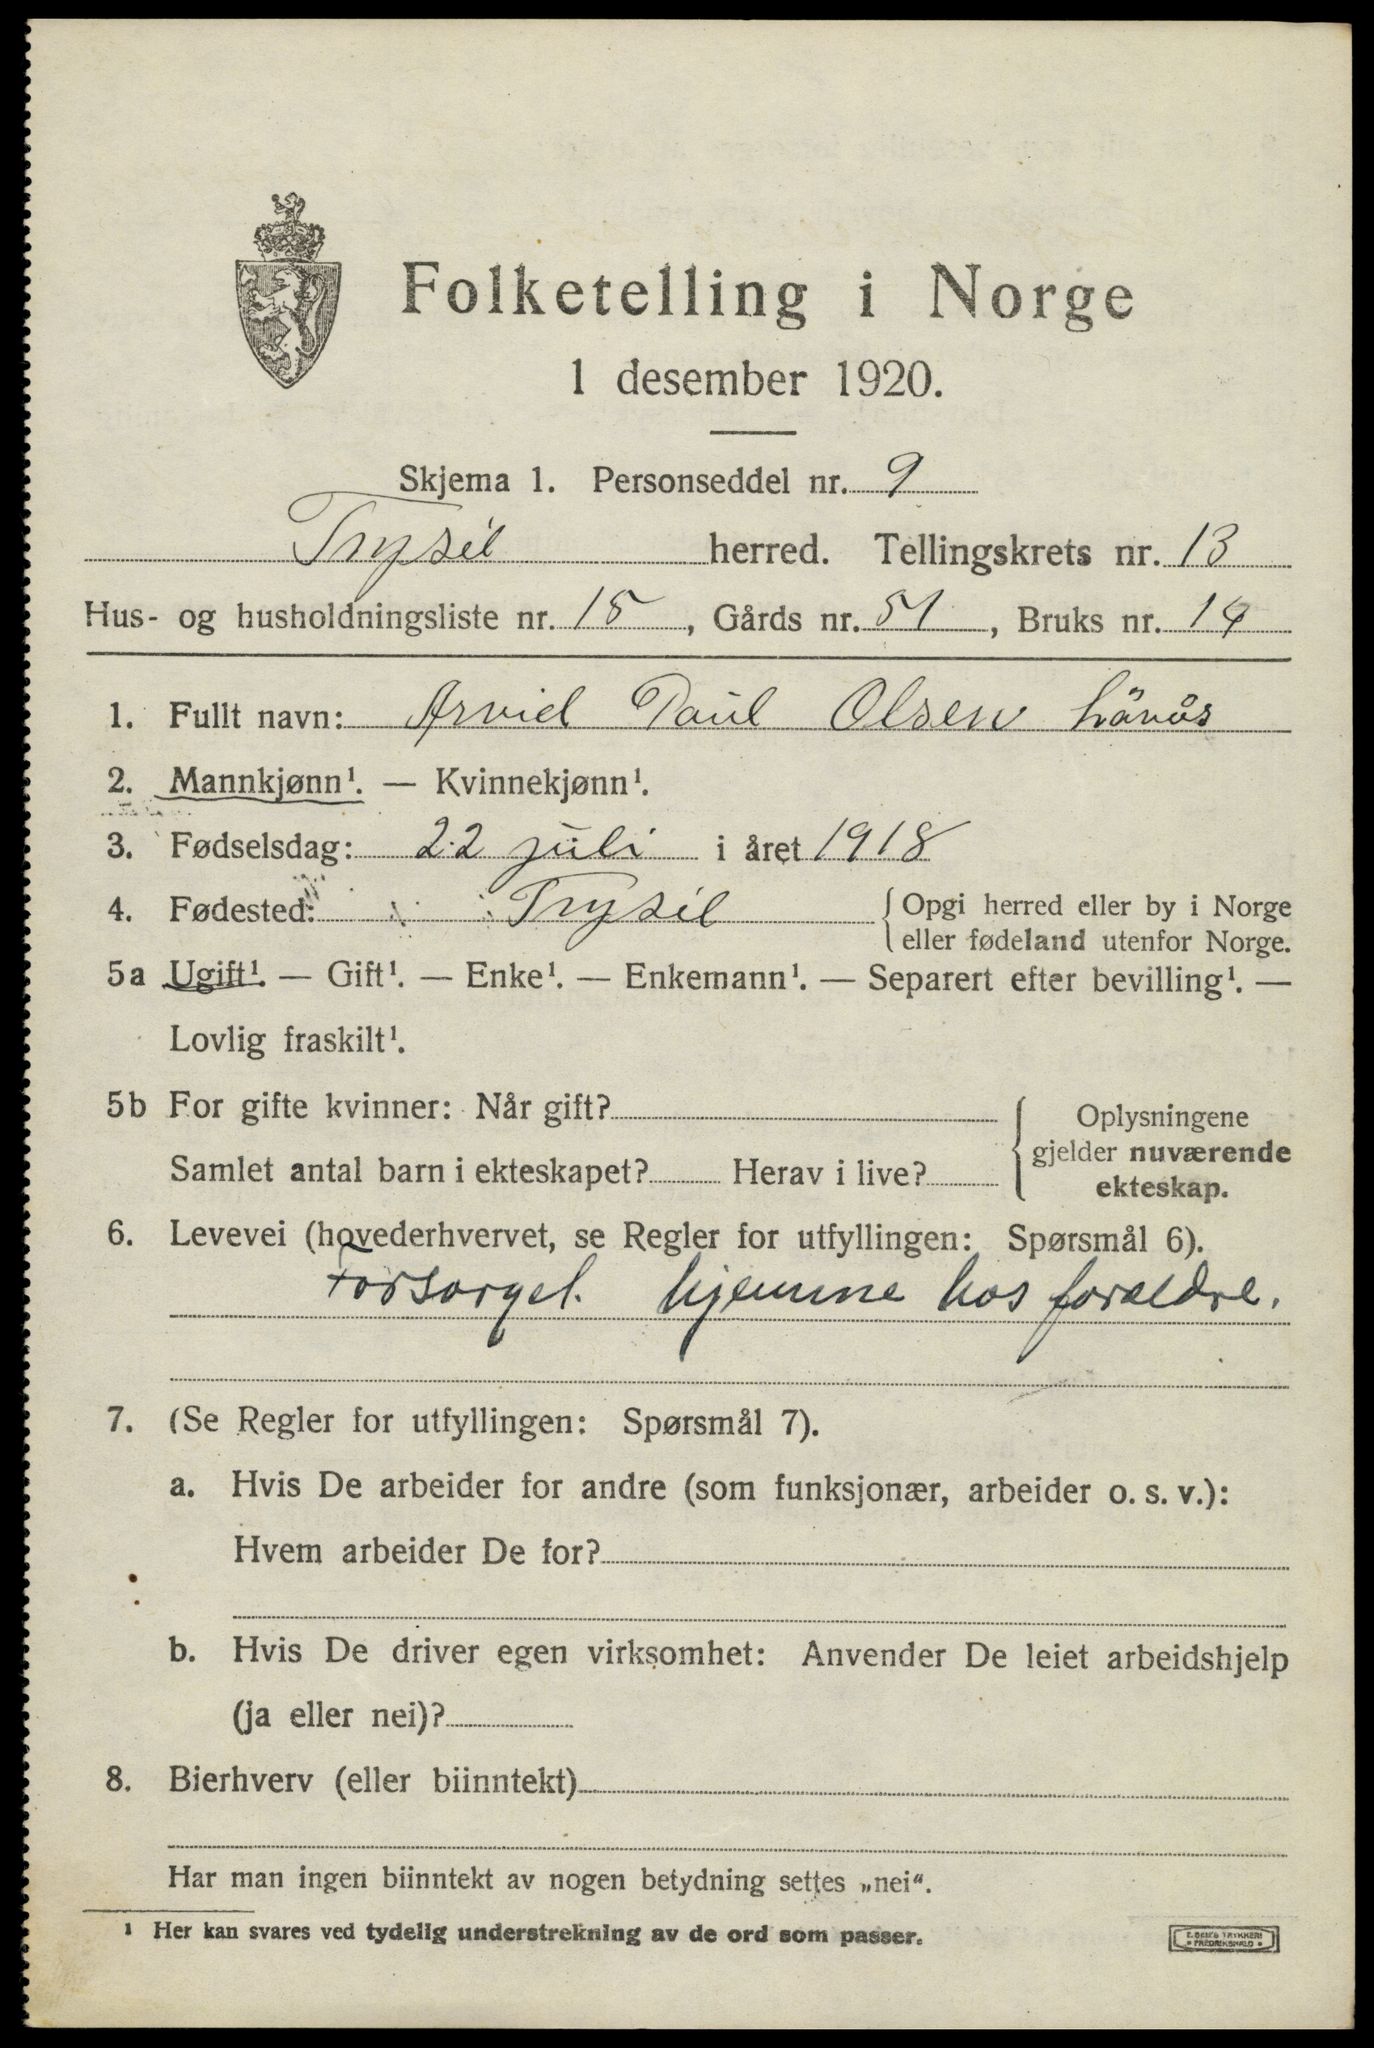 Folketelling i Norge
1 desember 1920.
Skjema 1. Personseddel nr. 9
Trysil herred. Tellingskrets nr. 13
Hus- og husholdningsliste nr. 15, Gårds nr. 51, Bruks nr. 14
1. Fullt navn: Arvid Paul Olsen
2. Mannkjønn¹. — Kvinnekjønn¹.
3. Fødselsdag: 22 juli i året 1918
4. Fødested: Trysil { Opgi herred eller by i Norge
eller fødeland utenfor Norge.
5a Ugift¹. — Gift¹. — Enke¹. — Enkemann¹. — Separert efter bevilling¹. —
Lovlig fraskilt¹.
5b For gifte kvinner: Når gift?
Samlet antal barn i ekteskapet? Herav i live?
Oplysningene
gjelder nuværende
ekteskap.
6. Levevei (hovederhvervet, se Regler for utfyllingen: Spørsmål 6).
Forsørget hjemme hos forældre.
7. (Se Regler for utfyllingen: Spørsmål 7).
a. Hvis De arbeider for andre (som funksjonær, arbeider o. s. v.):
Hvem arbeider De for?
b. Hvis De driver egen virksomhet: Anvender De leiet arbeidshjelp
(ja eller nei)?
8. Bierhverv (eller biinntekt)
Har man ingen biinntekt av nogen betydning settes „nei“.
¹ Her kan svares ved tydelig understrekning av de ord som passer.
E. SEM'S TRYKKERI
FREDRIKSHALD